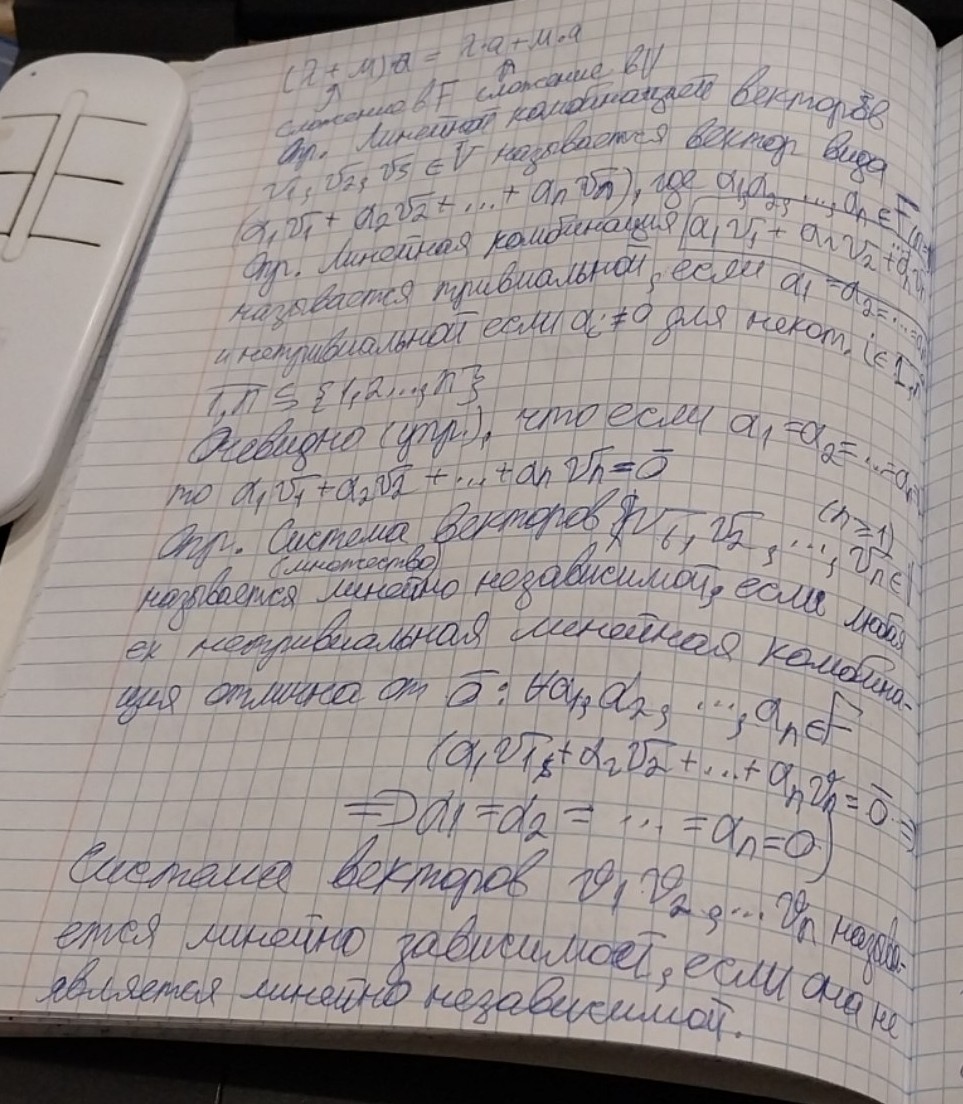 (λ+μ)·a = λ·a+μ·a
сложение в F сложение в V
Опр. Линейной комбинацией векторов
v̅₁, v̅₂, v̅₃ ∈ V называется вектор вида
(α₁v̅₁ + α₂v̅₂ + ... + αₙv̅ₙ), где α₁, α₂, ..., αₙ ∈ F
Опр. Линейная комбинация α₁v̅₁ + α₂v̅₂ + ... αₙv̅ₙ
называется тривиальной, если α₁ = α₂ = ... = αₙ
и нетривиальной если αᵢ ≠ 0 для некот. i ∈ 1,n
1,n ≤ {1,2...,n}
Очевидно (упр.), что если α₁ = α₂ = ... = αₙ
то α₁v̅₁ + α₂v̅₂ + ... + αₙv̅ₙ = 0̅
(n ≥ 1)
Опр. Система векторов v̅₁, v̅₂, ..., v̅ₙ ∈
(множество)
называется линейно независимой, если любая
ек нетривиальная линейная комбина-
ция отлична от 0̅ : ∀α₁, α₂, ..., αₙ ∈ F
(α₁v̅₁ + α₂v̅₂ + ... + αₙv̅ₙ = 0̅ ⇒
⇒ α₁ = α₂ = ... = αₙ = 0)
Система векторов v₁ v₂, ... vₙ называ-
ется линейно зависимой, если она не
является линейно независимой.